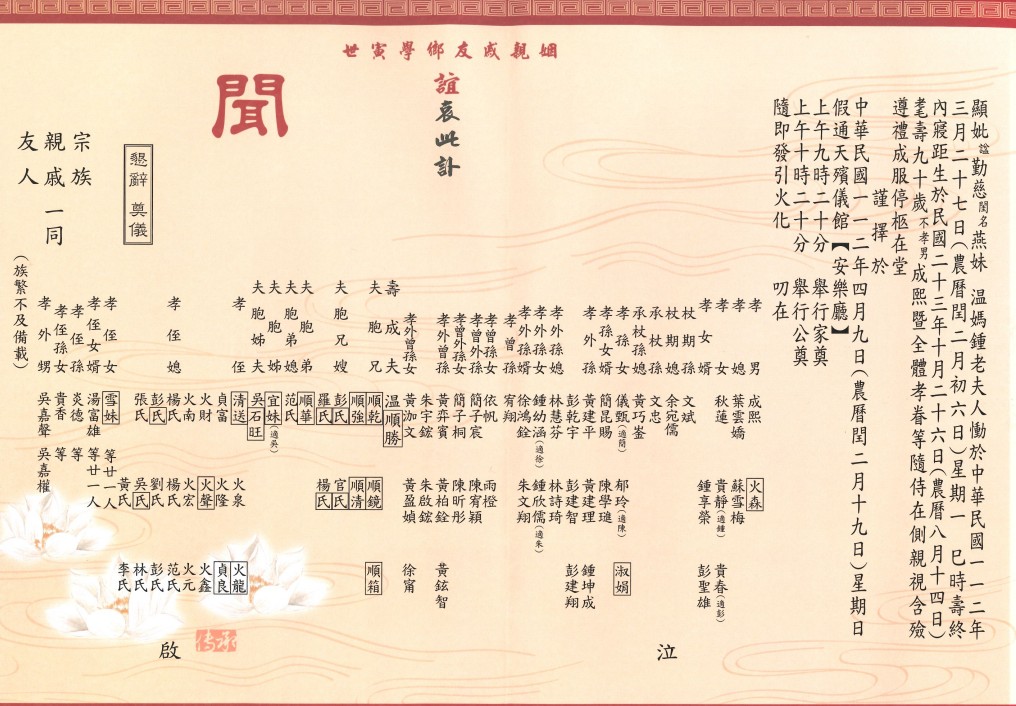 姻親戚友鄉學寅世
顯妣諡勤慈閨名燕妹 溫媽鍾老夫人慟於中華民國一一二年
三月二十七日(農曆閏二月初六日)星期一 巳時壽終
內寢距生於民國二十三年十月二十六日(農曆八月十四日)
耄壽九十歲不孝男成熙暨全體孝眷等隨侍在側親視含殮
遵禮成服停柩在堂
謹擇於
中華民國一一二年四月九日(農曆閏二月十九日)星期日
假通天殯儀館【安樂廳】
上午九時二十分 舉行家奠
上午十時二十分 舉行公奠
隨即發引火化 叨在
誼哀此訃
聞
孝男 成熙 火森
孝媳 葉雲嬌 蘇雪梅
孝女 秋蓮 貴靜(適鍾) 貴春(適彭)
孝女婿 鍾享榮 彭聖雄
杖期孫 文斌
杖期孫媳 余宛儒
承杖孫 文忠
承杖孫媳 黃巧崟
孝孫女 儀甄(適簡) 郁玲(適陳) 淑娟
孝孫女婿 簡昆賜 陳學璡
孝外孫 黃建平 黃建理 鍾坤成
彭乾宇 彭建智 彭建翔
孝外孫媳 林慧芬 林詩琦
孝外孫女 鍾幼涵(適徐) 鍾欣儒(適朱)
孝外孫女婿 徐鴻銓 朱文翔
孝曾孫 宥翔
孝曾孫女 依帆 雨橙
孝曾外孫 簡子宸 陳宥穎
孝曾外孫女 簡子桐 陳昕彤
孝外曾孫 黃弈賓 黃柏銓 黃鉉智
朱宇鋐 朱啟鋐
孝外曾孫女 黃泇文 黃盈媜 徐甯
壽成夫 溫順勝
夫胞兄 順乾 順鏡 順箱
順強 順清
夫胞兄嫂 彭氏 官氏
羅氏 楊氏
夫胞弟 順華
夫胞弟媳 范氏
夫胞姊 宜妹(適吳)
夫胞姊夫 吳石旺
孝侄 清送 火泉 火龍
貞富 火隆 貞良
火財 火聲 火鑫
火南 火宏 火元
孝侄媳 楊氏 楊氏 范氏
彭氏 劉氏 彭氏
張氏 吳氏 林氏
黃氏 李氏
孝侄女 雪妹 等廿一人
孝侄女婿 湯富雄 等廿一人
孝侄孫 炎德 等
孝侄孫女 貴香 等
孝外甥 吳嘉聲 吳嘉權
(族繁不及備載)
泣 啟
懇辭 奠儀
宗族
親戚一同
友人
傳承